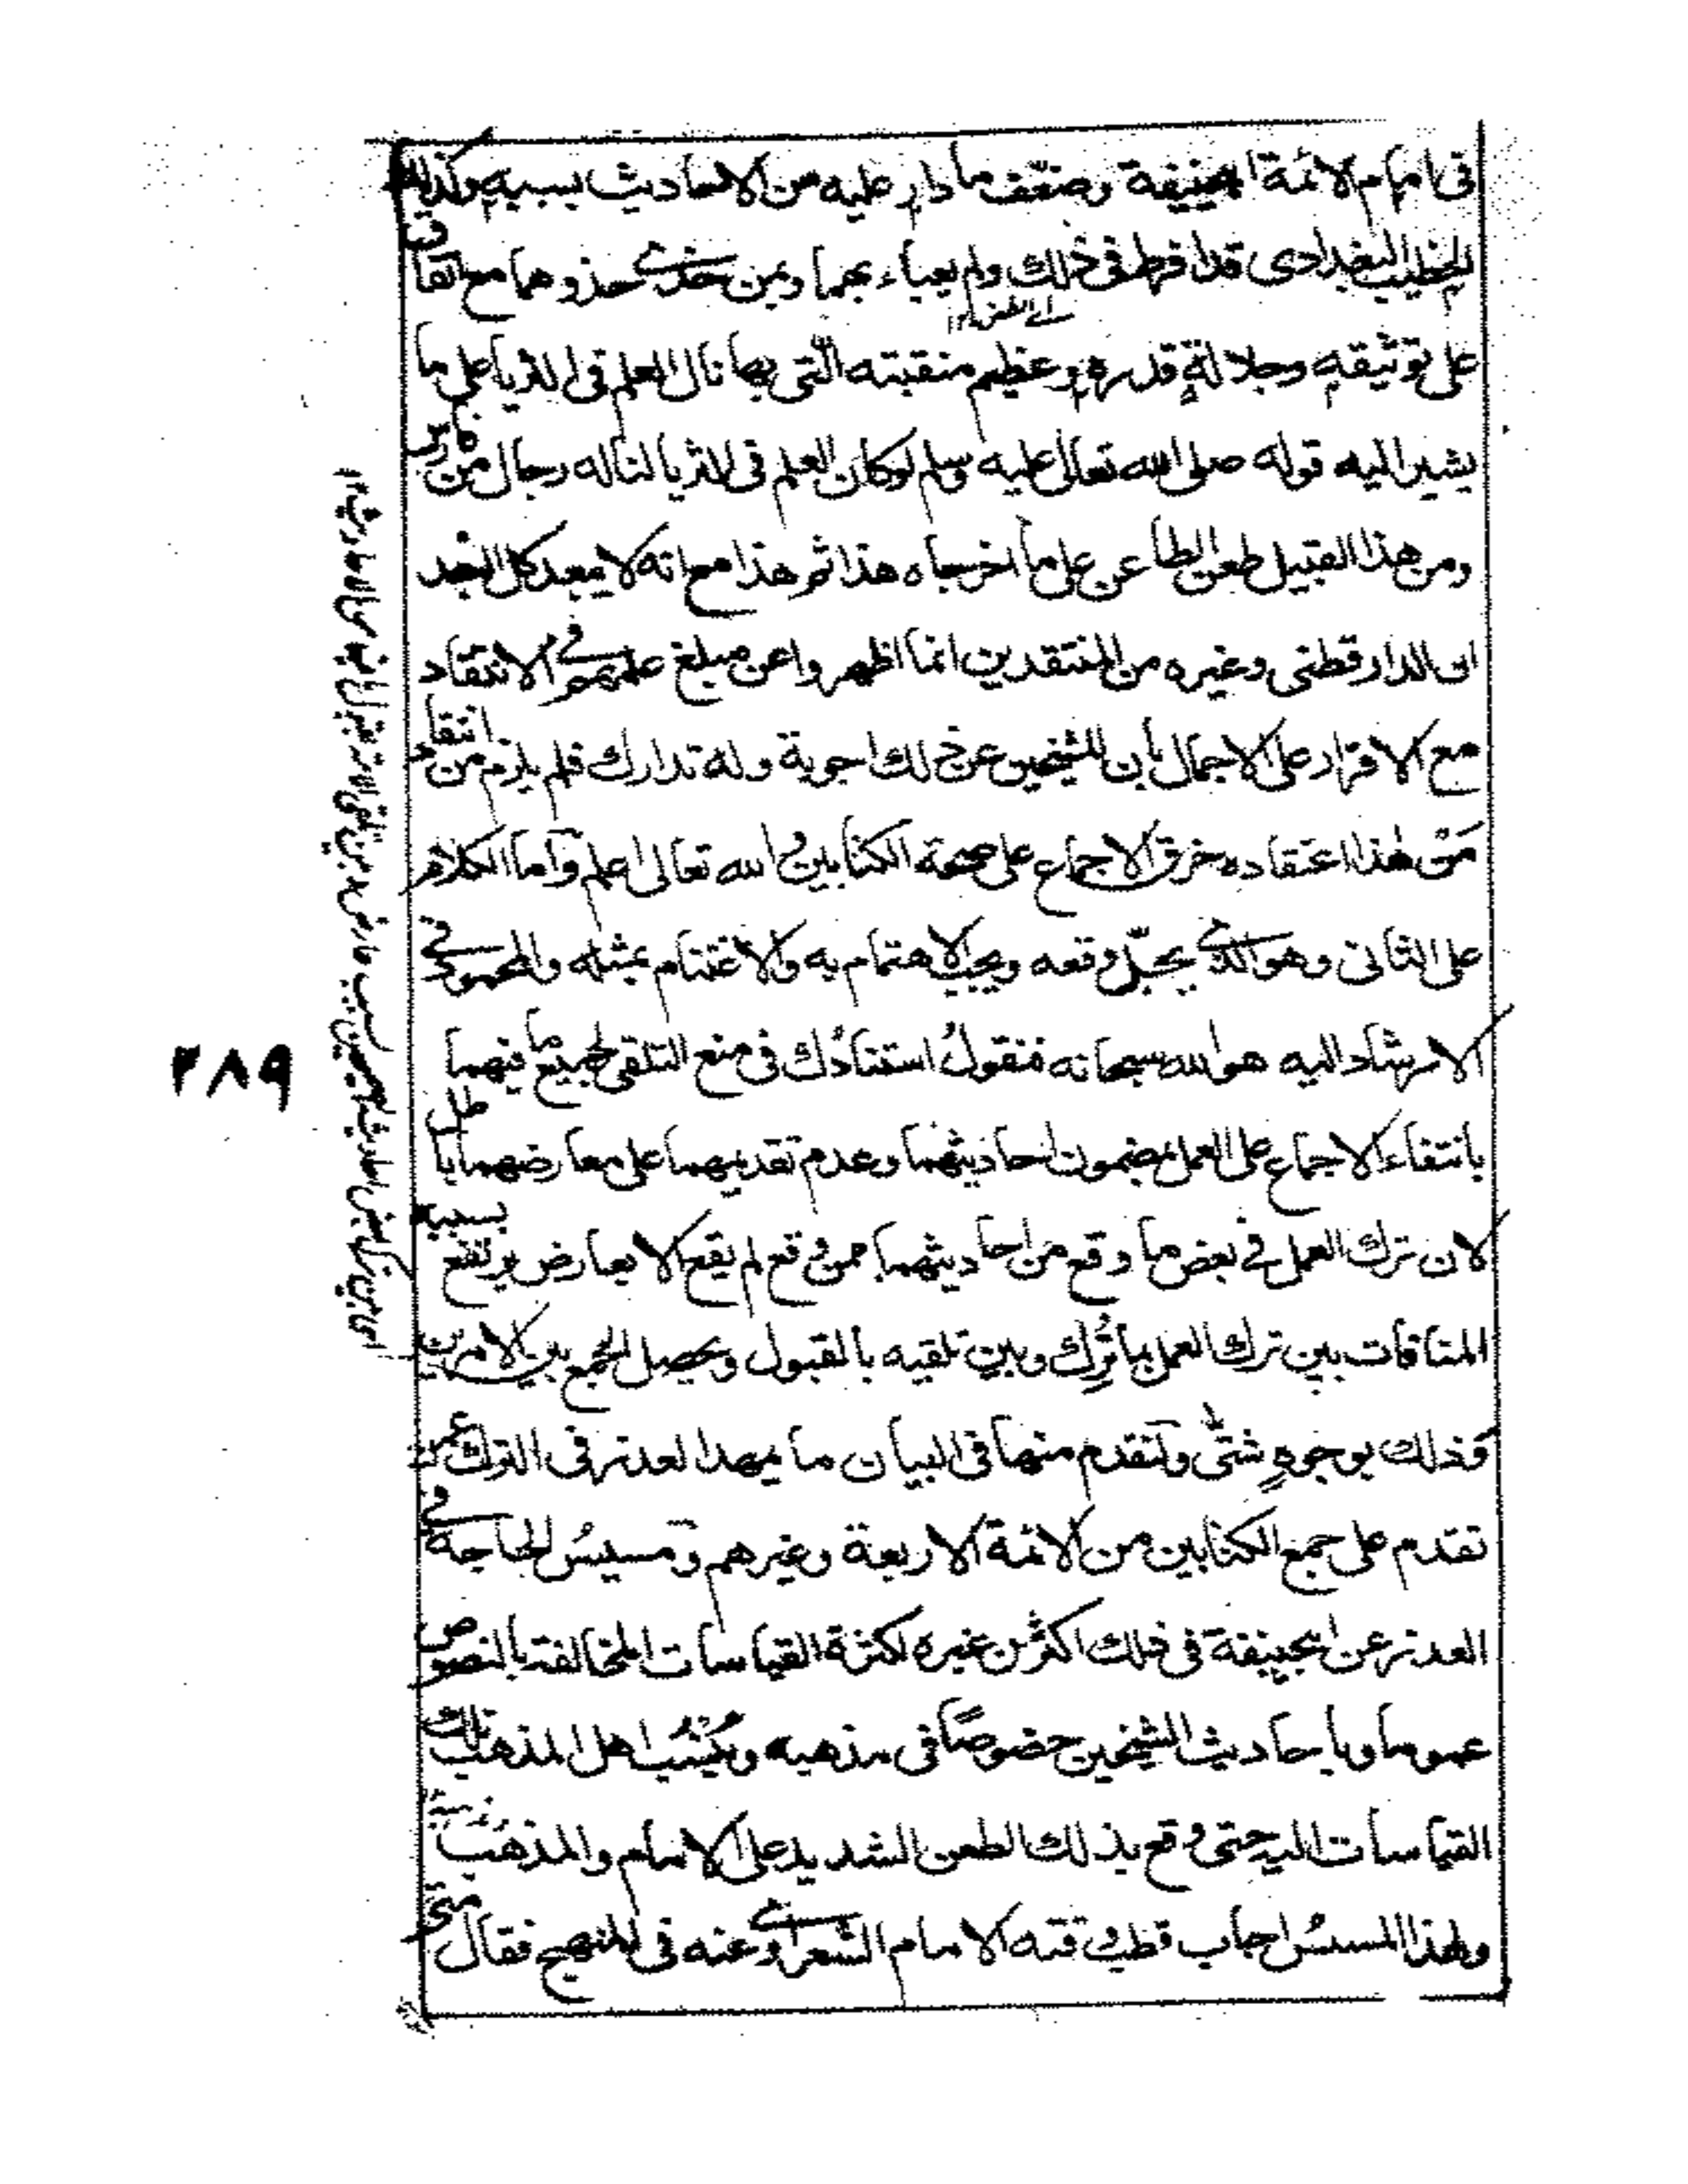 فى امام الائمة ابیحنیفة وضعّف ما دار عليه من الاحاديث بسببه وكذلك
الخطيب البغدادى قد افرط فى ذلك ولم يعباء بهما وبمن حذى حذوهما مع اتفاق
على توثيقه وجلالة قدره وعظيم منقبته الّتى بها نال العلم فى الثريا على ما
يشير اليه قوله صلى الله تعالى عليه وسلم لوكان العلم فى الثريا لناله رجال من فارس
ومن هذا القبيل طعن الطاعن على ما اخرجاه هذا ثم هذا مع انه لا يبعد كل البعد
ان الدارقطنى وغيره من المنتقدين انما اظهروا عن مبلغ علمهم فى الانتقاد
مع الاقرار على الاجمال بان للشيخين عن ذلك اجوبة وله تدارك فلم يلزم من انتقاد
مَنْ هذا اعتقاده خرق الاجماع على صحة الكتابين والله تعالى اعلم وآما الكلام
على الثانى وهو الذى يجلّ وقعه ويجب الاهتمام به والاغتنام بمثله والمحمود فى
الارشاد اليه هو الله سبحانه فنقولُ استنادُك فى منع التلقى لجميع ما فيهما
بانتفاء الاجماع على العمل بمضمون احاديثهما وعدم تقديمهما على معارضهما باطل
لان ترك العمل فى بعض ما وقع من احاديثهما ممن وقع لم يقع الا بعارض يرتفع بسببه
المنافات بين ترك العمل بما تُرِك وبين تلقيه بالقبول ويحصل الجمع بين الامرين
وذلك بوجوهٍ شتّى ولنقدم منها فى البيان ما يمهد العذر فى الترك عمن
تقدم على جمع الكتابين من الائمة الاربعة وغيرهم ومسيسُ الحاجة فى
العذر عن ابیحنیفة فى ذلك اكثر من غيره لكثرة القياسات المخالفة بالنصوص
عموما وباحاديث الشيخين خصوصًا فى مذهبه ونسب اهل المذهب تلك
القياسات اليه حتى وقع بذلك الطعن الشديد على الامام والمذهب
ولهذا المسيسُ اجاب قطب وقته الامام الشعراوى عنه فى المنهج فقال متى
٢٨٩